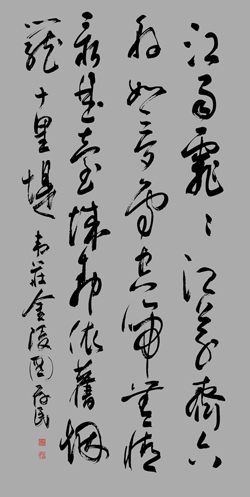 江雨霏霏江草齊六
朝如夢鳥空啼無情
最是臺城柳依舊烟
籠十里堤 韋莊金陵圖 民